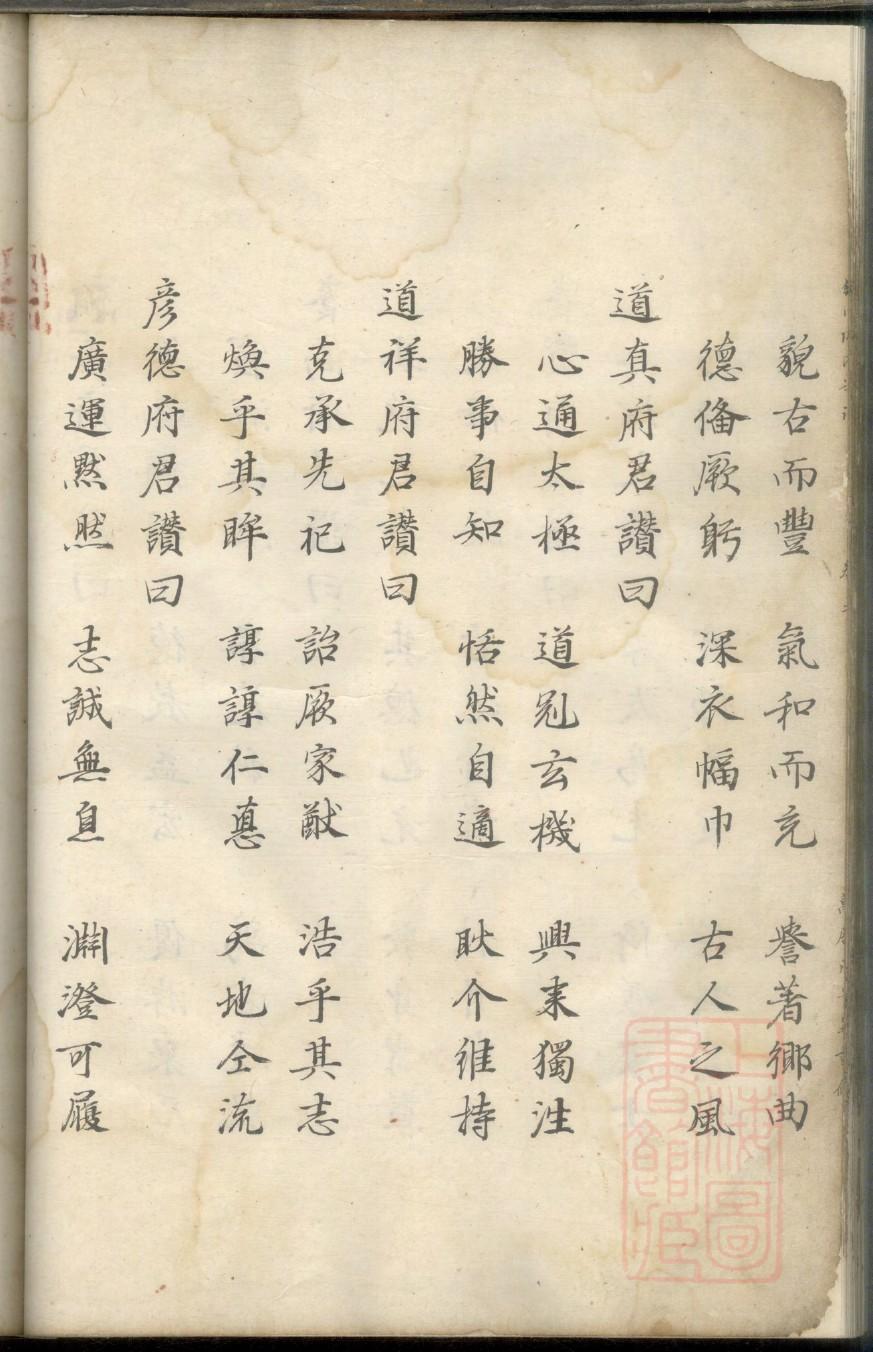 貌古而豐　氣和而充　譽著鄉曲
德偹厥躬　深衣幅巾　古人之風
道真府君讚曰
心通太極　道剖玄機　興来獨泩
勝事自知　恬然自適　耿介維持
道祥府君讚曰
克承先祀　詒厥家猷　浩乎其志
煥乎其眸　諄諄仁惪　天地仝流
彦德府君讚曰
廣運黙然　志誠無息　淵澄可履
上海圖書館藏